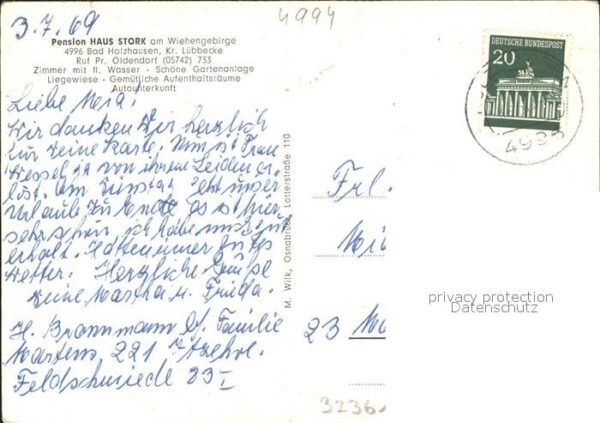 3.7.69
4994
Pension HAUS STORK am Wiehengebirge
4996 Bad Holzhausen, Kr. Lübbecke
Ruf Pr. Oldendorf (05742) 733
Zimmer mit fl. Wasser - Schöne Gartenanlage
Liegewiese - Gemütliche Aufenthaltsräume
Autounterkunft
Liebe
Wir danken Dir herzlich
für Deine Karte. Nun ist Frau
Wessel von ihrem Leiden er-
löst. Am Dienstag geht unser
Urlaub zu Ende. Es ist hier
sehr schön, ich habe mich gut
erholt. Hatten immer gutes
Wetter. Herzliche Grüße
Deine Martha u. Frieda.
H. Brannmann Familie
Martens, 221 Itzehoe.
Feldschmiede 83 I
M. Wilk, Osnabrück, Lotterstraße 110
DEUTSCHE BUNDESPOST
20
Frl.
23
3236
privacy protection
Datenschutz